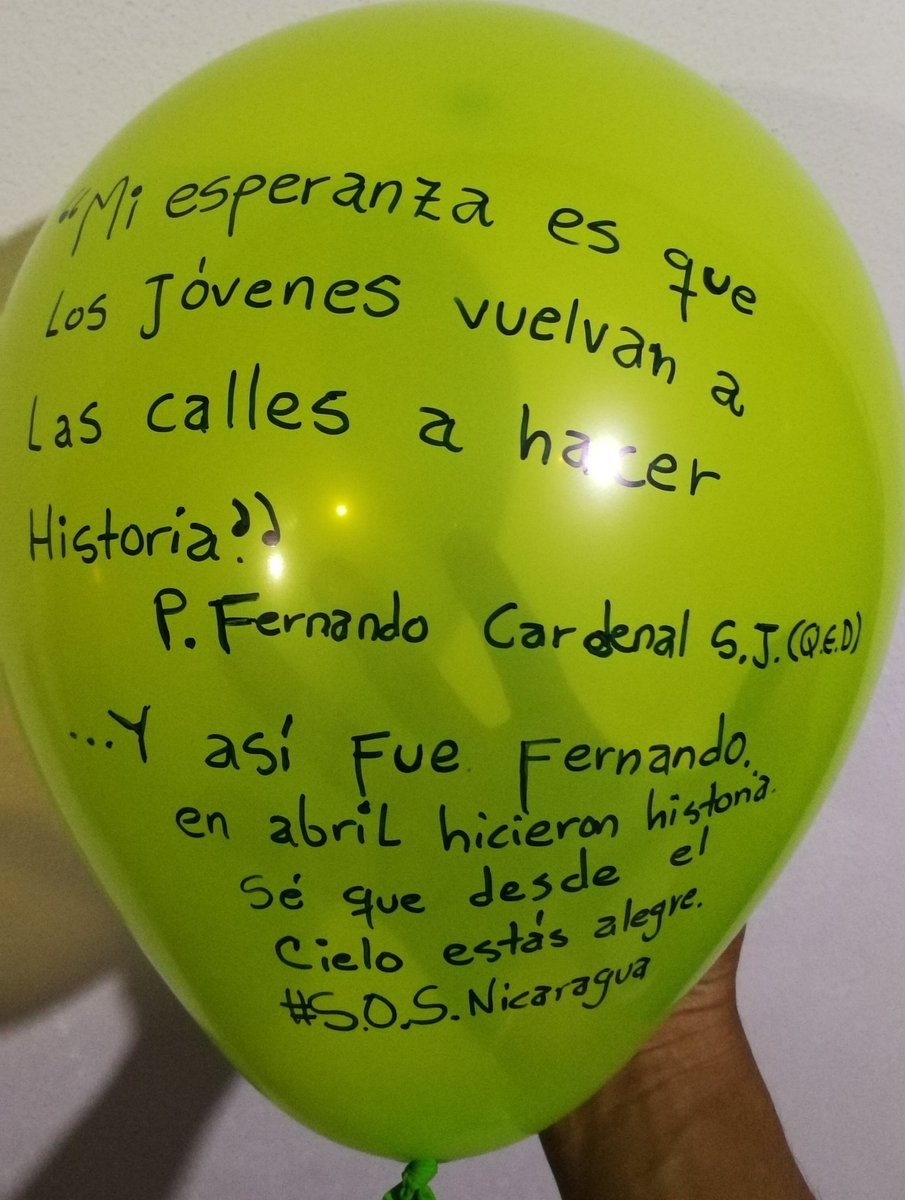 "Mi esperanza es que
los jóvenes vuelvan a
las calles a hacer
Historia."
P. Fernando Cardenal S.J. (Q.E.D)
...Y así fue Fernando.
en abril hicieron historia.
Sé que desde el
Cielo estás alegre.
#S.O.S. Nicaragua